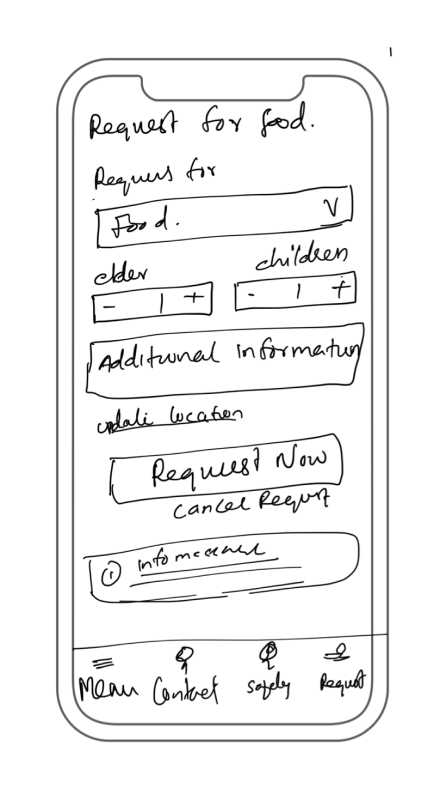 1
Request for food.
Request for
Food. V
elder children
- 1 + - 1 +
Additional information
update location
Request Now
Cancel Request
i info message
Menu Contact Safety Request